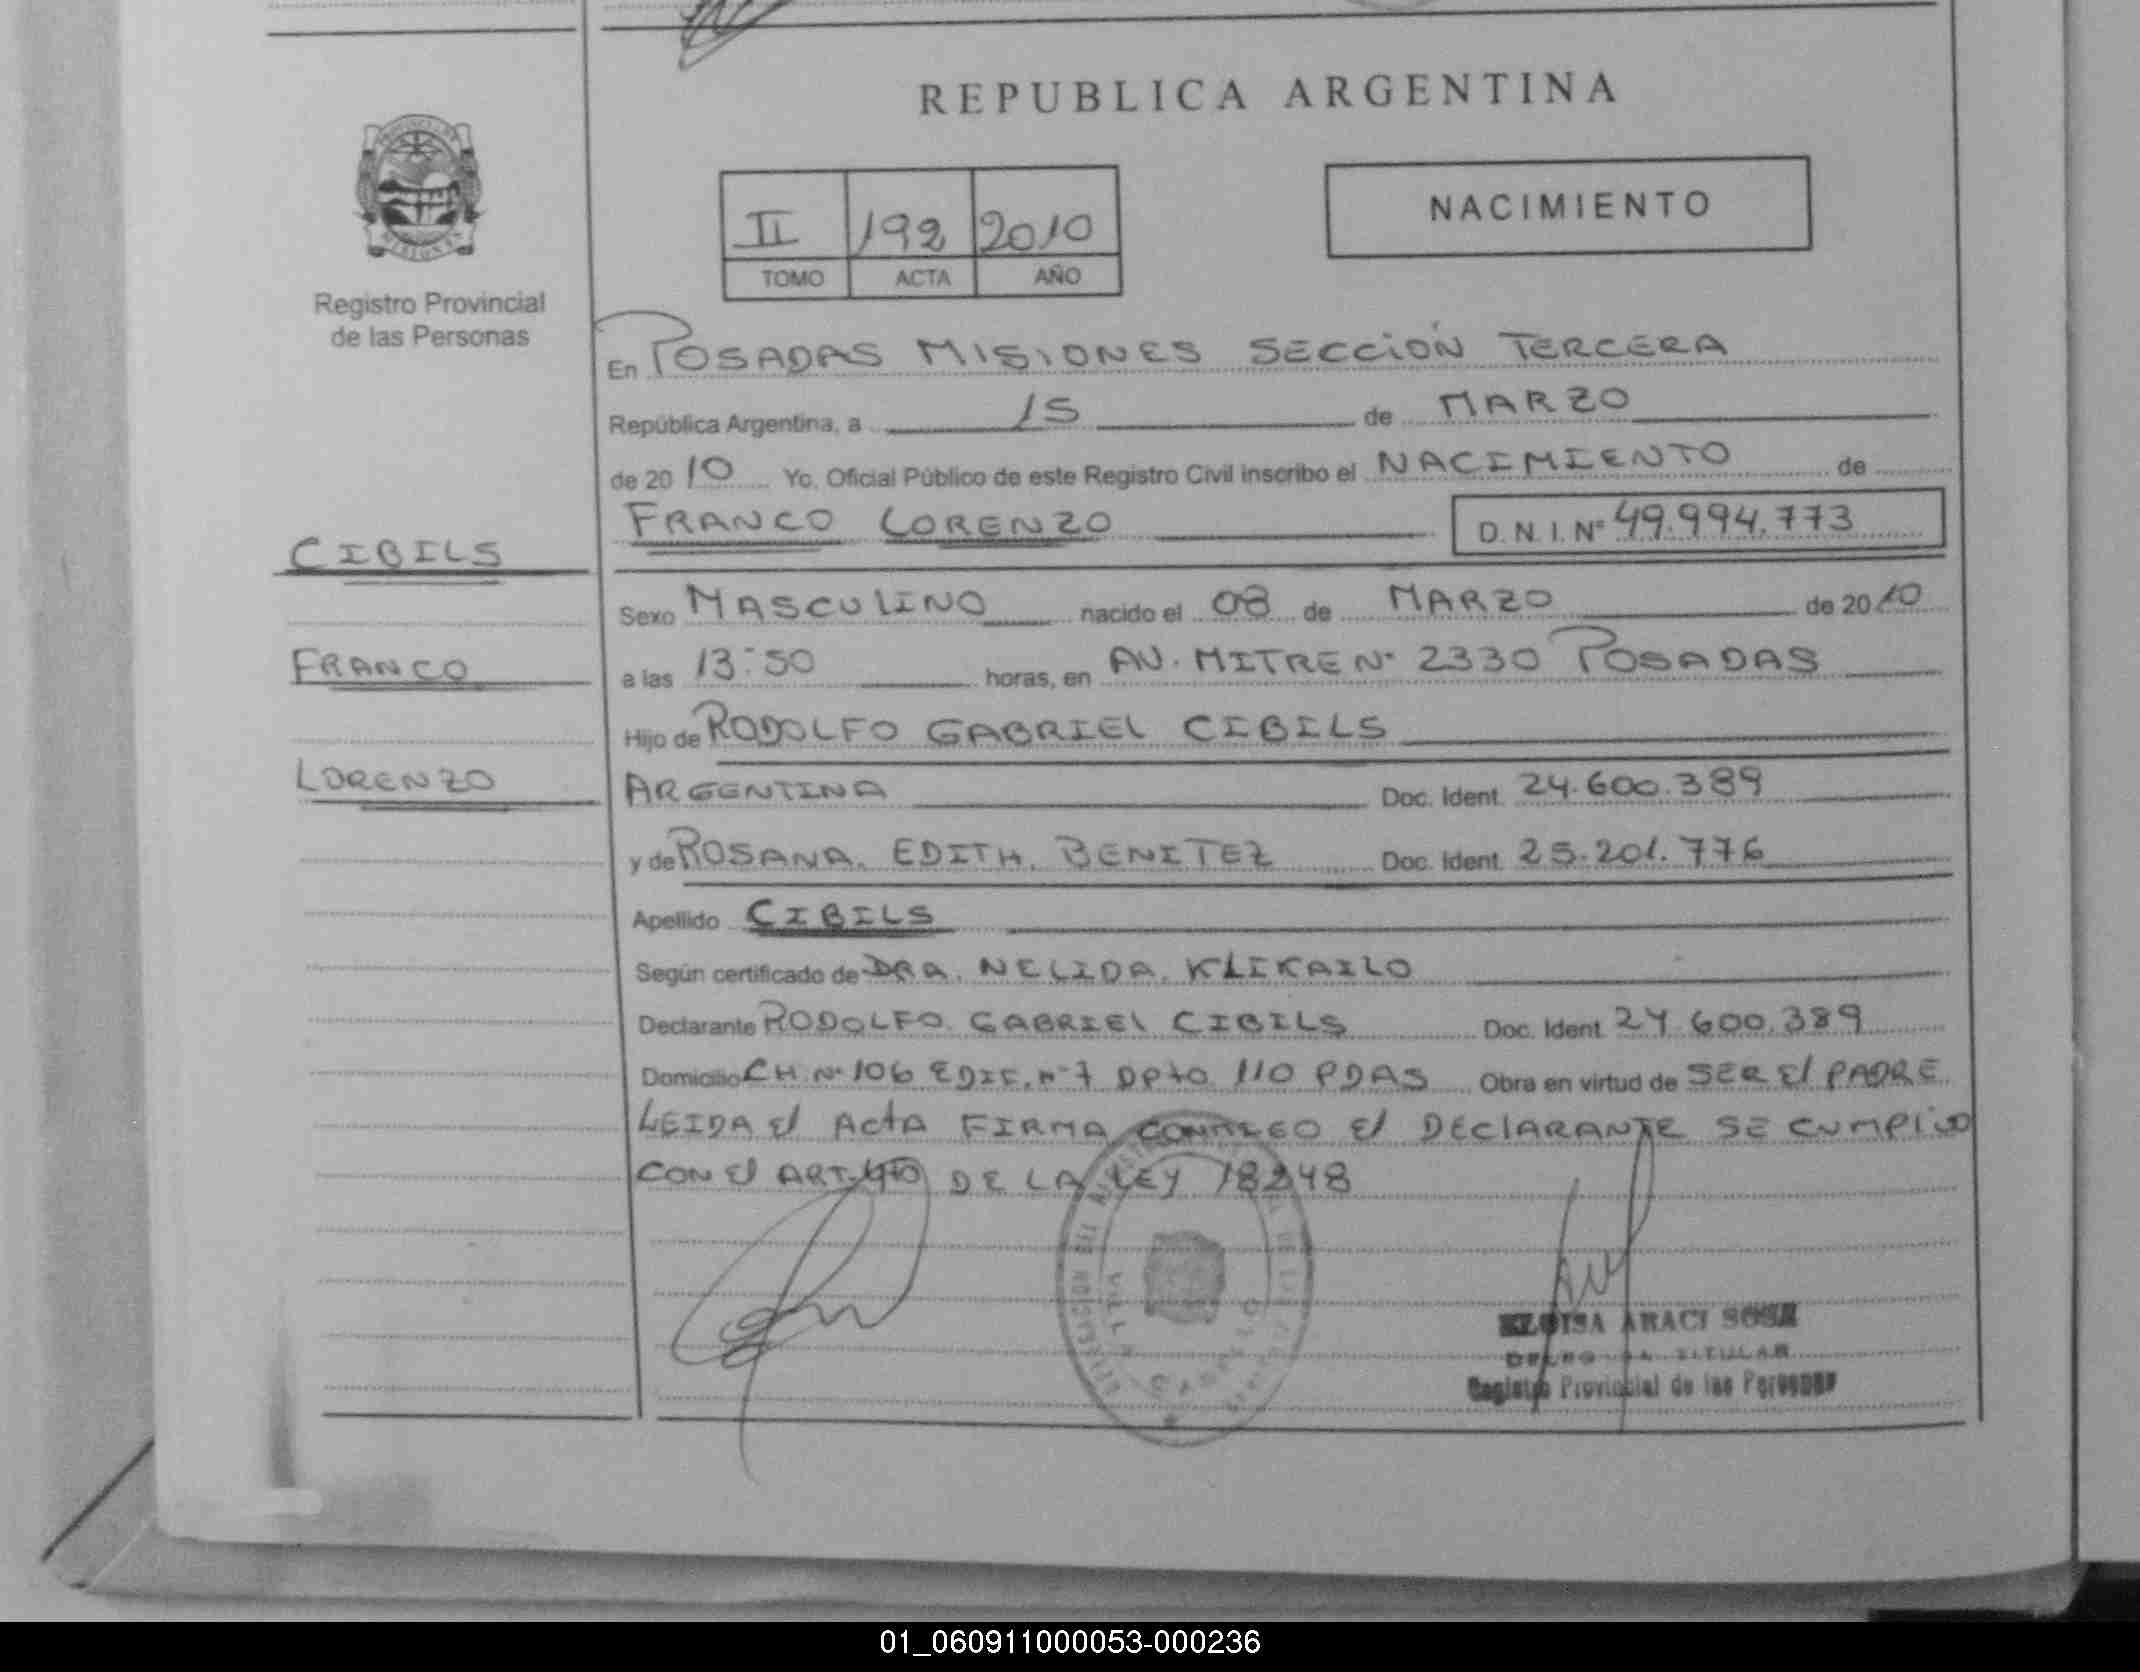 REPUBLICA ARGENTINA
NACIMIENTO
II 192 2010
TOMO ACTA AÑO
Registro Provincial
de las Personas
En POSADAS MISIONES SECCIÓN TERCERA
República Argentina, a 15 de MARZO
de 2010 Yo, Oficial Público de este Registro Civil inscribo el NACIMIENTO de
FRANCO LORENZO D.N.I. Nº 49.994.773
CIBILS
FRANCO
LORENZO
Sexo MASCULINO nacido el 08 de MARZO de 2010
a las 13:50 horas, en AV. MITRE Nº 2330 POSADAS
Hijo de RODOLFO GABRIEL CIBILS
ARGENTINA Doc. Ident. 24.600.389
y de ROSANA. EDITH. BENITEZ Doc. Ident. 25.201.776
Apellido CIBILS
Según certificado de DRA. NELIDA. KLIKAILO
Declarante RODOLFO. GABRIEL CIBILS Doc. Ident. 24.600.389
Domicilio CH. Nº 106 EDIF. Nº 7 DPTO 110 PDAS Obra en virtud de SER El PADRE
LEIDA El ACTA FIRMA CONMIGO El DEClARANTE SE CUMPLIO
CON El ART. DE LA LEY 18248
ELOISA ARACI SOSA
TITULAR
Registro Provincial de las Personas
01_060911000053-000236